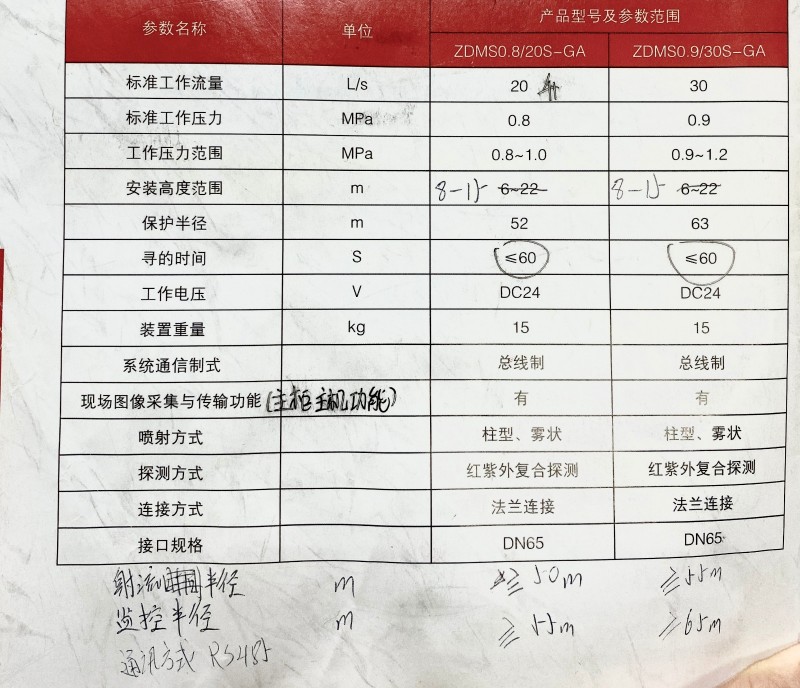 参数名称 单位 产品型号及参数范围
ZDMS0.8/20S-GA ZDMS0.9/30S-GA
标准工作流量 L/s 20 30
标准工作压力 MPa 0.8 0.9
工作压力范围 MPa 0.8~1.0 0.9~1.2
安装高度范围 m 8-15 6~22 8-15 6~22
保护半径 m 52 63
寻的时间 S ≤60 ≤60
工作电压 V DC24 DC24
装置重量 kg 15 15
系统通信制式 总线制 总线制
现场图像采集与传输功能(主柜主机功能) 有 有
喷射方式 柱型、雾状 柱型、雾状
探测方式 红紫外复合探测 红紫外复合探测
连接方式 法兰连接 法兰连接
接口规格 DN65 DN65
射流半径 m ≥50m ≥55m
监控半径 m ≥55m ≥65m
通讯方式 RS485